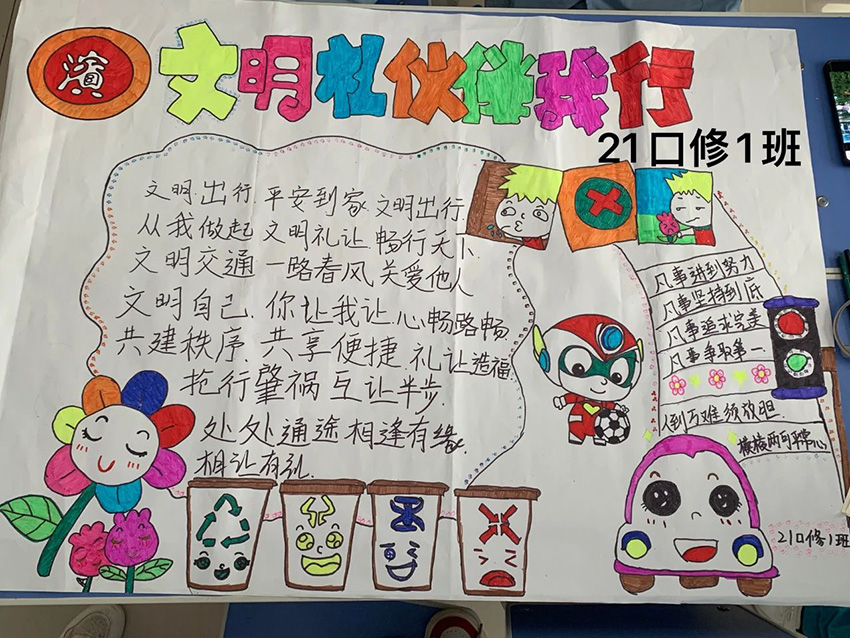 演
文明礼伙伴我行
21口修1班
文明出行 平安到家 文明出行
从我做起 文明礼让 畅行天下
文明交通 一路春风 关爱他人
文明自己 你让我让 心畅路畅
共建秩序 共享便捷 礼让造福
抢行肇祸 互让半步
处处通途 相逢有缘
相让有礼
凡事讲到努力
凡事坚持到底
凡事追求完美
凡事争取第一
21口修1班